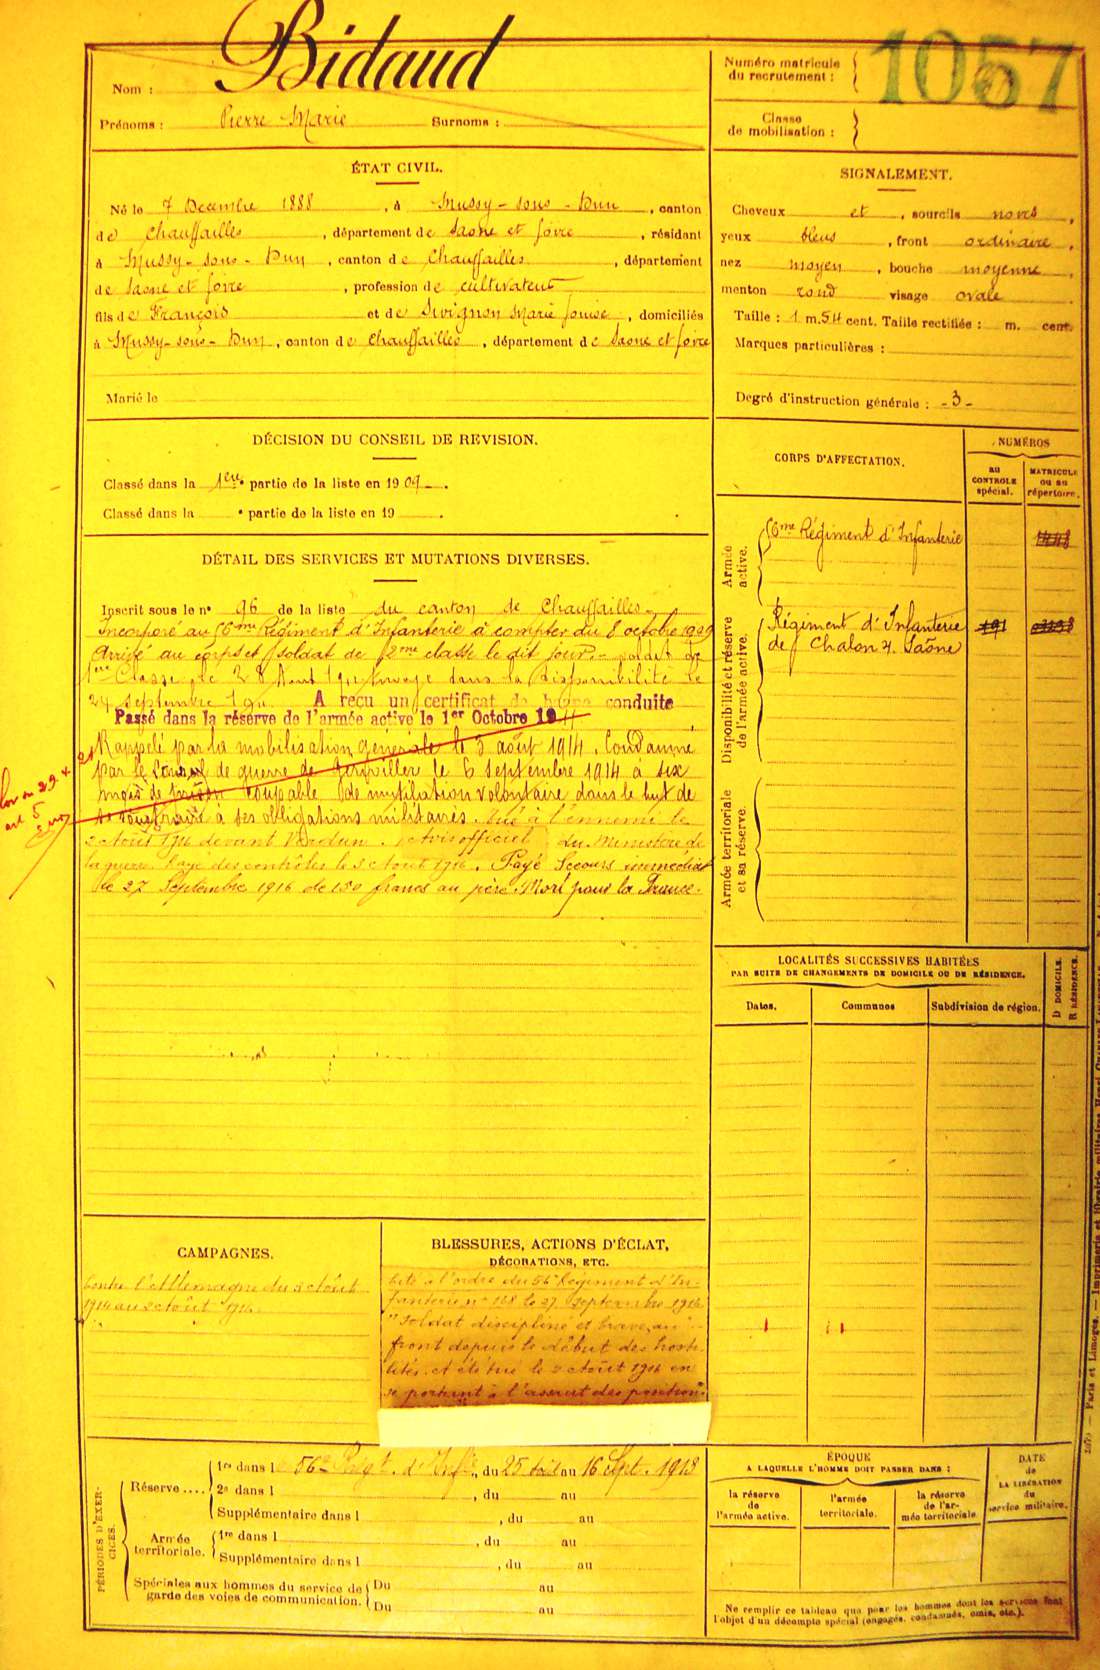 Nom : Bidaud
Prénoms : Pierre Marie Surnoms :
Numéro matricule
du recrutement : 1057
Classe
de mobilisation :
ÉTAT CIVIL.
Né le 7 Décembre 1888, à Mussy-sous-Dun, canton
de Chauffailles, département de Saône et Loire, résidant
à Mussy-sous-Dun, canton de Chauffailles, département
de Saône et Loire, profession de cultivateur
fils de François et de Divignon Marie Louise, domiciliés
à Mussy-sous-Dun, canton de Chauffailles, département de Saône et Loire
Marié le
SIGNALEMENT.
Cheveux et, sourcils noirs,
yeux bleus, front ordinaire,
nez moyen, bouche moyenne,
menton rond visage ovale
Taille : 1 m. 54 cent. Taille rectifiée : m. cent.
Marques particulières :
Degré d'instruction générale : -3-
DÉCISION DU CONSEIL DE REVISION.
Classé dans la 1ère partie de la liste en 1909.
Classé dans la e partie de la liste en 19 .
DÉTAIL DES SERVICES ET MUTATIONS DIVERSES.
Inscrit sous le n° 96 de la liste du canton de Chauffailles.
Incorporé au 56me Régiment d'Infanterie à compter du 8 octobre 1909
Arrivé au corps et soldat de 2me classe le dit jour. - soldat de
1ère Classe le 28 Août 1911 envoyé dans la disponibilité le
24 septembre 1911. A reçu un certificat de bonne conduite
Passé dans la réserve de l'armée active le 1er Octobre 1911
Rappelé par la mobilisation générale le 3 août 1914. Condamné
par le Conseil de guerre de le 6 septembre 1914 à six
mois de prison coupable de mutilation volontaire dans le but de
se soustraire à ses obligations militaires. Tué à l'ennemi le
2 Août 1916 devant Verdun. Avis officiel du Ministère de
la guerre. Rayé des contrôles le 2 Août 1916. Payé Secours immédiat
le 27 Septembre 1916 de 150 francs au père. Mort pour la France.
art 5
CORPS D'AFFECTATION.
NUMÉROS
au
CONTROLE
spécial.
MATRICULE
ou au
répertoire.
Armée
active.
56me Régiment d'Infanterie
Disponibilité et réserve
de l'armée active.
Régiment d'Infanterie
de Chalon s. Saône
191
Armée territoriale
et sa réserve.
LOCALITÉS SUCCESSIVES HABITÉES
PAR SUITE DE CHANGEMENTS DE DOMICILE OU DE RÉSIDENCE.
Dates.
Communes
Subdivision de région.
D DOMICILE.
R RÉSIDENCE.
CAMPAGNES.
Contre l'Allemagne du 3 Août
1914 au 2 Août 1916.
BLESSURES, ACTIONS D'ÉCLAT,
DÉCORATIONS, ETC.
Cité à l'ordre du 56e Régiment d'In-
fanterie n° 168 le 27 septembre 1916
"soldat discipliné et brave, au
front depuis le début des hosti-
lités. A été tué le 2 Août 1916 en
se portant à l'assaut des positions
PÉRIODES D'EXER-
CICES.
Réserve ....
1re dans le 56e Régt. d'Infie, du 25 Août au 16 Sept. 1913
2e dans l , du au
Supplémentaire dans l , du au
Armée
territoriale.
1re dans l , du au
Supplémentaire dans l , du au
Spéciales aux hommes du service de
garde des voies de communication.
Du au
Du au
ÉPOQUE
A LAQUELLE L'HOMME DOIT PASSER DANS :
la réserve
de
l'armée active.
l'armée
territoriale.
la réserve
de l'ar-
mée territoriale.
DATE
de
LA LIBÉRATION
du
service militaire.
Ne remplir ce tableau que pour les hommes dont les services font
l'objet d'un décompte spécial (engagés, condamnés, omis, etc.).